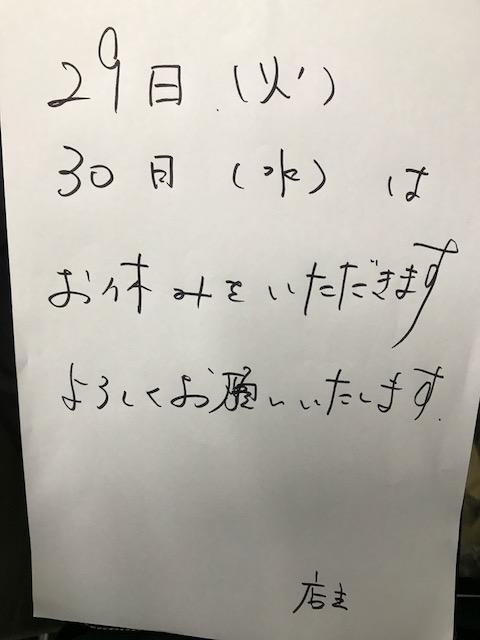 29日（火）
30日（水）は
お休みをいただきます
よろしくお願いいたします.
店主